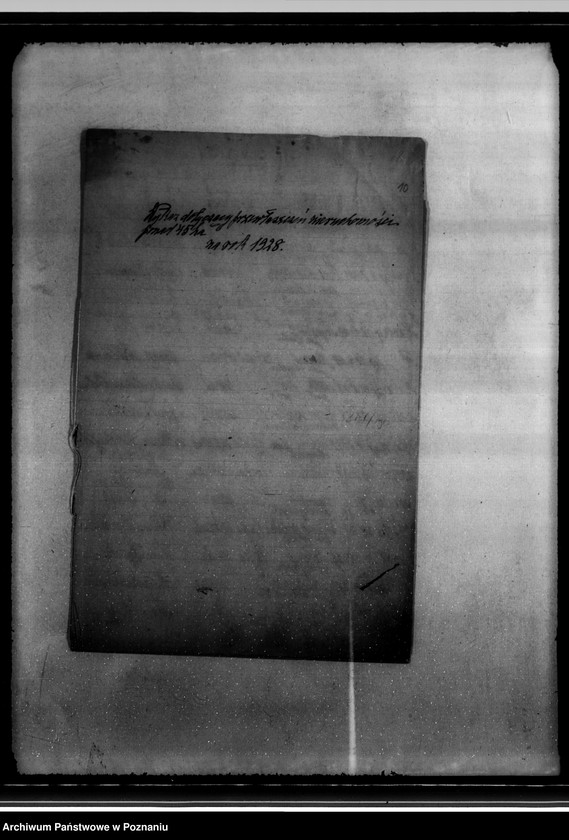 10
Wykaz dotyczący przewłaszczeń nieruchomości
ponad 45 ha
na rok 1928.
Archiwum Państwowe w Poznaniu